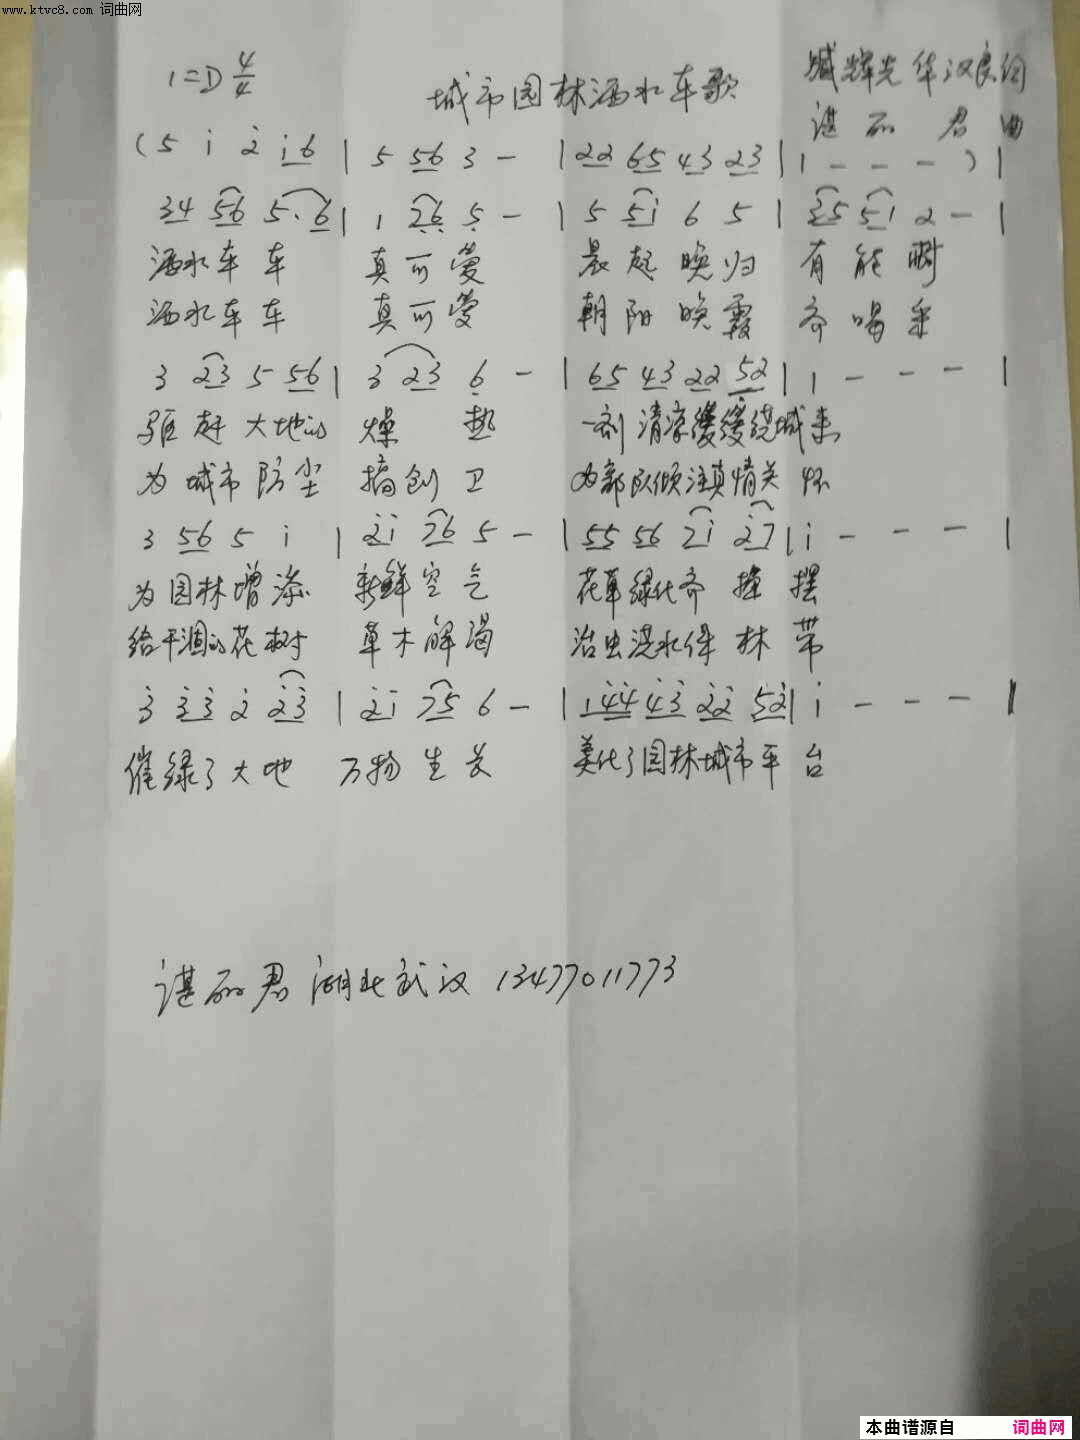 www.ktvc8.com 词曲网
1=D 4/4
城市园林洒水车歌
臧辉光 华汉良词
谌丽君曲
(5 i 2 i6 | 5 56 3 - | 22 65 43 23 | 1 - - - ) |
34 56 5·6 | 1 26 5 - | 5 5i 6 5 | 35 51 2 - |
洒水车车 真可爱 晨起晚归 有能耐
洒水车车 真可爱 朝阳晚霞 齐喝采
3 23 5 56 | 3 23 6 - | 65 43 22 52 | 1 - - - |
驱赶大地的 燥热 一剂清凉缓缓绕城来
为城市防尘 搞创卫 为部队倾注真情关怀
3 56 5 i | 2i 76 5 - | 55 56 7i 27 | i - - - |
为园林增添 新鲜空气 花草绿化齐 摆
给干涸的花树 草木解渴 治虫浇水保林带
3 33 2 23 | 2i 75 6 - | 144 43 22 52 | i - - - |
催绿了大地 万物生长 美化了园林城市平台
谌丽君 湖北武汉 13477011773
本曲谱源自 词曲网